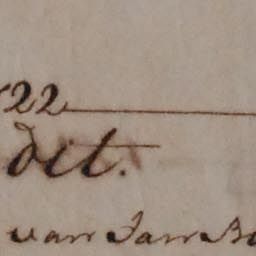 22
dit.
van Jan